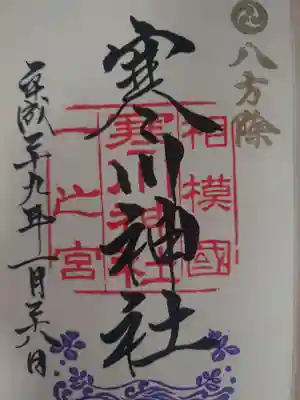 八方除
寒川神社
相模國
一之宮
寒川神社
平成二十九年一月二十八日